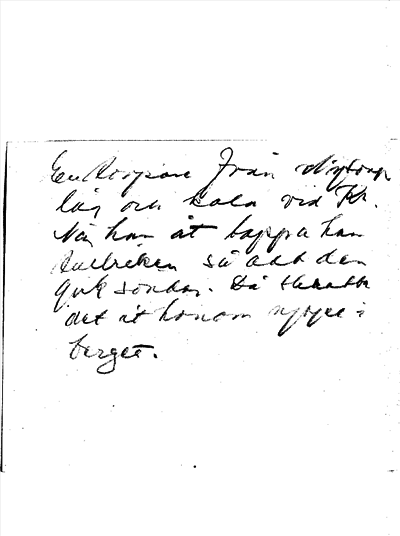 En korpare från
låg och kala vid
När han åt tappa han
tallriken så att den
gick sönder. Då skratta
det åt honom uppe i
berget.